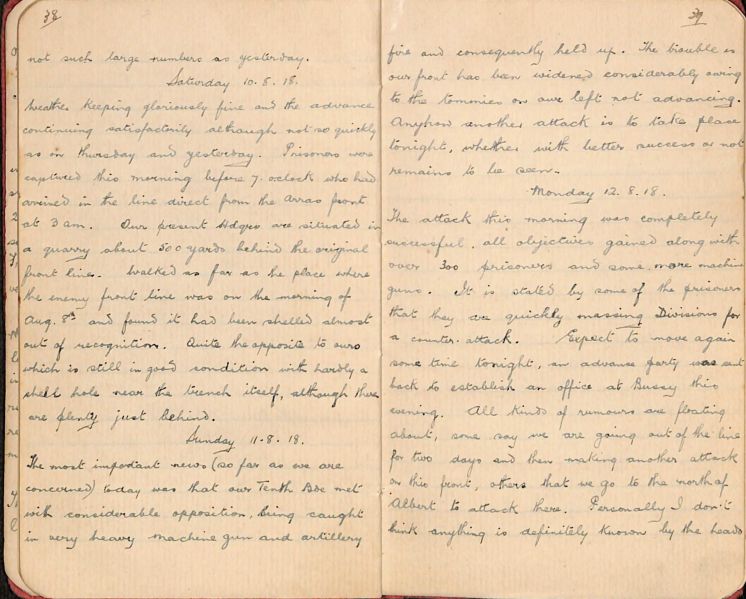 38
not such large numbers as yesterday.
Saturday 10.8.18.
Weather keeping gloriously fine and the advance
continuing satisfactorily although not so quickly
as on Thursday and yesterday. Prisoners were
captured this morning before 7. oclock who had
arrived in the line direct from the Arras front
at 3 am. Our present Hdqrs are situated in
a quarry about 500 yards behind the original
front line. Walked as far as the place where
the enemy front line was on the morning of
Aug. 8th and found it had been shelled almost
out of recognition. Quite the opposite to ours
which is still in good condition with hardly a
shell hole near the trench itself, although there
are plenty just behind.
Sunday 11.8.18.
The most important news (so far as we are
concerned) today was that our Tenth Bde met
with considerable opposition, being caught
in very heavy machine gun and artillery
39
fire and consequently held up. The trouble is
our front has been widened considerably owing
to the tommies on our left not advancing.
Anyhow another attack is to take place
tonight, whether with better success or not
remains to be seen.
Monday 12.8.18.
The attack this morning was completely
successful, all objectives gained along with
over 300 prisoners and some more machine
guns. It is stated by some of the prisoners
that they are quickly massing Divisions for
a counter attack. Expect to move again
some time tonight, an advance party was sent
back to establish an office at Bussy this
evening. All kinds of rumours are floating
about, some say we are going out of the line
for two days and then making another attack
on this front, others that we go to the north of
Albert to attack there. Personally I don't
think anything is definitely known by the heads